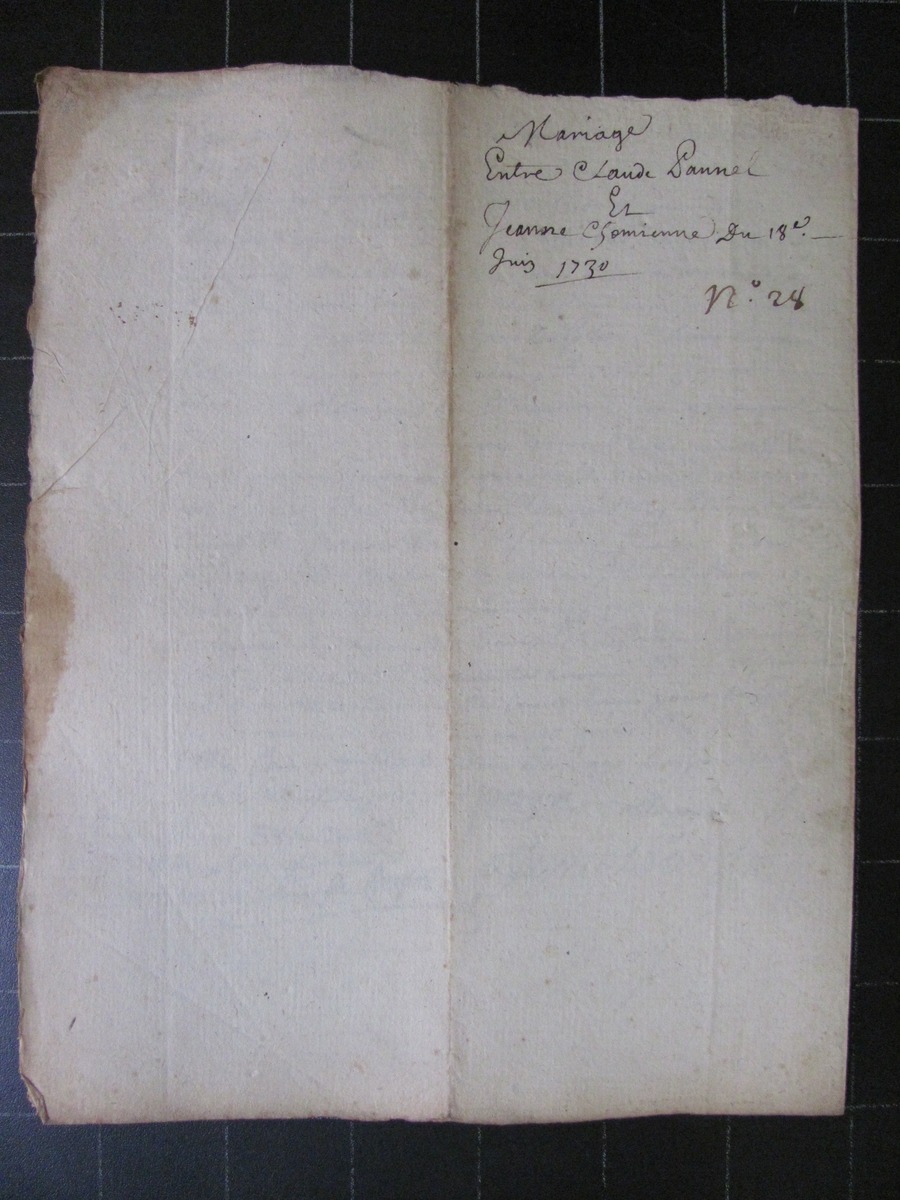 Mariage
Entre Claude Pannel
Et
Jeanne Chomienne Du 18e.
Juin 1730
N.o 28